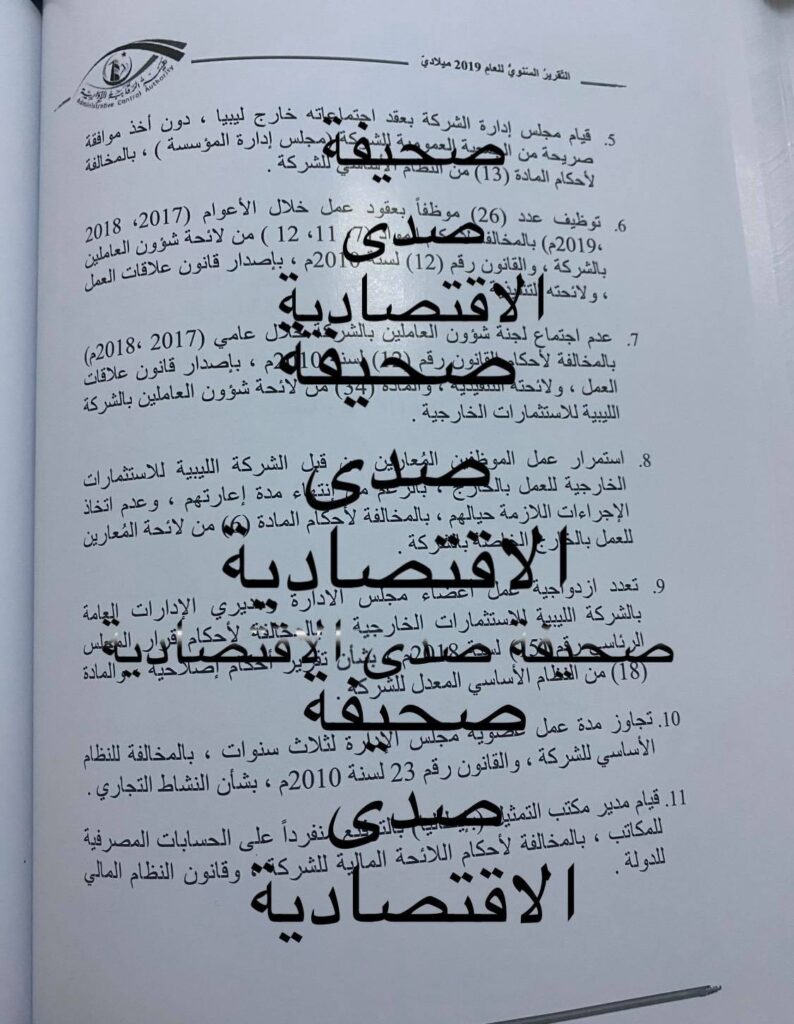 التقرير السنوي للعام 2019 ميلادي
Administrative Control Authority
5. قيام مجلس إدارة الشركة بعقد اجتماعاته خارج ليبيا ، دون أخذ موافقة
صريحة من العمومية للشركة (مجلس إدارة المؤسسة ) ، بالمخالفة
لأحكام المادة (13) من النظام الأساسي للشركة .
صحيفة
6. توظيف عدد (26) موظفاً بعقود عمل خلال الأعوام (2017، 2018
،2019م) بالمخالفة 11، 12 ) من لائحة شؤون العاملين
بالشركة ، والقانون رقم (12) لسنة 2010م ، بإصدار قانون علاقات العمل
، ولائحته التنفيذية
صدى
الاقتصادية
7. عدم اجتماع لجنة شؤون العاملين بالشركة خلال عامي (2017 ،2018م)
بالمخالفة لأحكام القانون رقم (12) لسنة 2010م ، بإصدار قانون علاقات
العمل ، ولائحته التنفيذية ، والمادة (34) من لائحة شؤون العاملين بالشركة
الليبية للاستثمارات الخارجية .
صحيفة
8. استمرار عمل الموظفين المُعارين قبل الشركة الليبية للاستثمارات
الخارجية للعمل بالخارج ، بالرغم من إنتهاء مدة إعارتهم ، وعدم اتخاذ
الإجراءات اللازمة حيالهم ، بالمخالفة لأحكام المادة (6) من لائحة المُعارين
للعمل بالخارج الخاصة بالشركة .
صدى
الاقتصادية
9. تعدد ازدواجية عمل أعضاء مجلس الادارة ومديري الإدارات العامة
بالشركة الليبية للاستثمارات الخارجية بالمخالفة لأحكام قرار المجلس
الرئاسي رقم لسنة 2018م بشأن تقرير أحكام إصلاحية والمادة
(18) من النظام الأساسي المعدل للشركة .
صحيفة صدى الاقتصادية
صحيفة
10. تجاوز مدة عمل عضوية مجلس الإدارة لثلاث سنوات ، بالمخالفة للنظام
الأساسي للشركة ، والقانون رقم 23 لسنة 2010م ، بشأن النشاط التجاري .
صدى
11. قيام مدير مكتب التمثيل (بريطانيا) بالتوقيع منفرداً على الحسابات المصرفية
للمكاتب ، بالمخالفة لأحكام اللائحة المالية للشركة ، وقانون النظام المالي
للدولة .
الاقتصادية